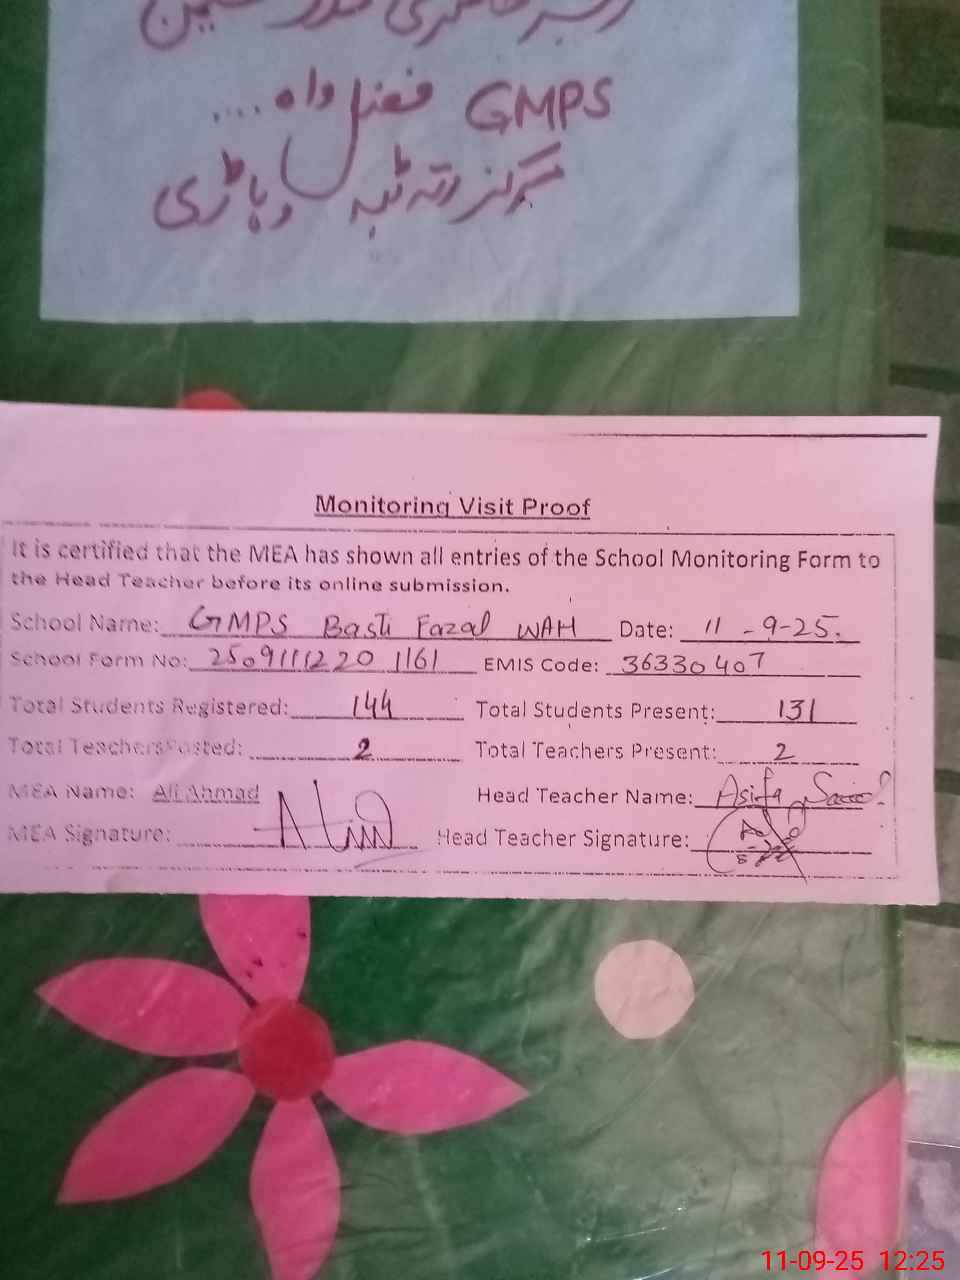 GMPS فضل واہ ....
مرکز رتہ ٹبہ وہاڑی
Monitoring Visit Proof
It is certified that the MEA has shown all entries of the School Monitoring Form to
the Head Teacher before its online submission.
School Name: GMPS Basti Fazal WAH Date: 11-9-25.
School Form No: 2509111220 1161 EMIS Code: 36330407
Total Students Registered: 144 Total Students Present: 131
Total Teachers Posted: 2 Total Teachers Present: 2
MEA Name: Ali Ahmad Head Teacher Name: Asifa
MEA Signature: Head Teacher Signature:
11-09-25 12:25